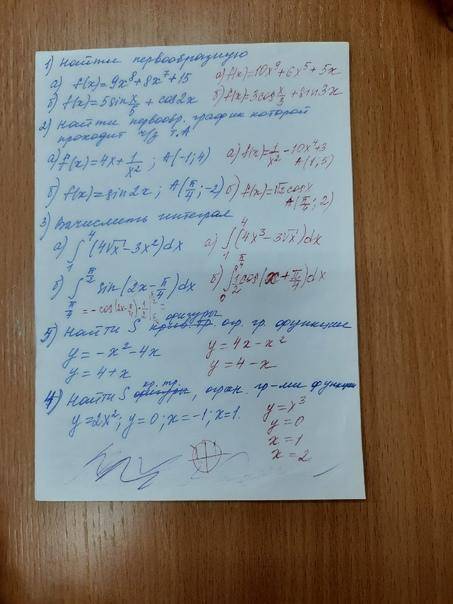 1) Найти первообразную
а) f(x)=9x⁸+8x⁷+15 а) f(x)=10x⁹+6x⁵+5x
б) f(x)=5sin x/5 + cos2x б) f(x)=3cos x/3 + sin3x
2) Найти первообр. график которой
проходит ч/з т.А
а) f(x)=4x+1/x²; A(-1;4) а) f(x)=1/x²-10x⁴+3 A(1;5)
б) f(x)=sin2x; A(π/4;-2) б) f(x)=√2cosx A(π/4;2)
3) Вычислить интеграл
а) ∫₁⁴(4√x-3x²)dx а) ∫₁⁴(4x³-3√x)dx
б) ∫ sin(2x-π/4)dx б) ∫ cos(x+π/4)dx
фигуры
5) Найти S огр. гр. функции
y=-x²-4x y=4x-x²
y=4+x y=4-x
кр. тр.
4) Найти S фигуры, огран. гр-ми функции
y=2x²; y=0; x=-1; x=1. y=x³
y=0
x=1
x=2